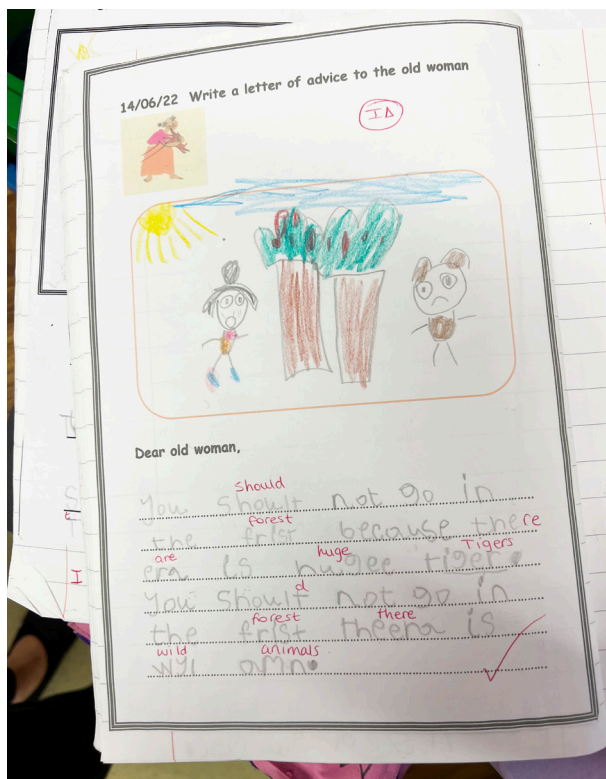 14/06/22 Write a letter of advice to the old woman
I∆
Dear old woman,
should
You shoult not go in
forest
the frist because there
are huge Tigers
era is hugee tiger.
d
You shoult not go in
forest there
the frist theera is
wild animals
wyl amn.